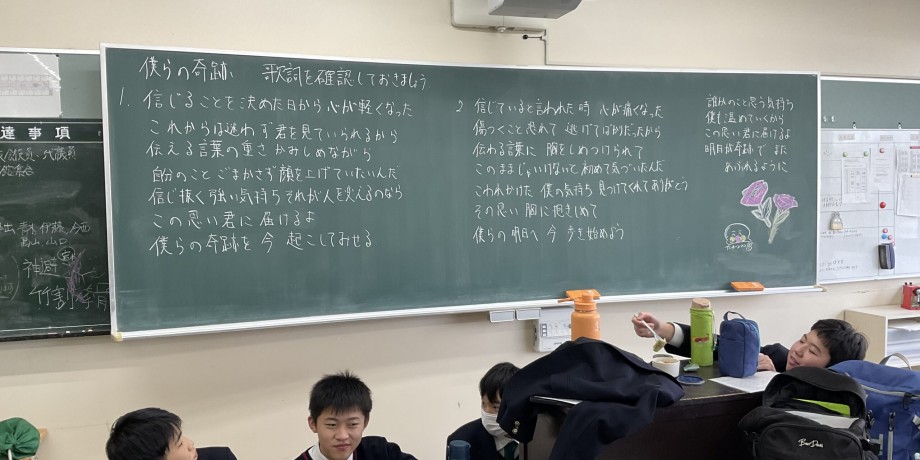 僕らの奇跡 歌詞を確認しておきましょう
1. 信じることを決めた日から 心が軽くなった
これからは迷わず君を見ていられるから
伝える言葉の重さ かみしめながら
自分のこと ごまかさず顔を上げていたいんだ
信じ抜く強い気持ち それが人を変えるのなら
この思い君に届けるよ
僕らの奇跡を今 起こしてみせる
2 信じていると言われた時 心が痛くなった
傷つくこと恐れて 逃げてばかりだったから
伝わる言葉に 胸をしめつけられて
このままじゃいけないと初めて気づいたんだ
こわれかけた 僕の気持ち 見つけてくれてありがとう
その思い 胸に抱きしめて
僕らの明日へ 今 歩き始めよう
誰かのこと思う気持ち
僕も温めていくから
この思い君に届けるよ
明日は奇跡で また
あふれるように
達事項
山口